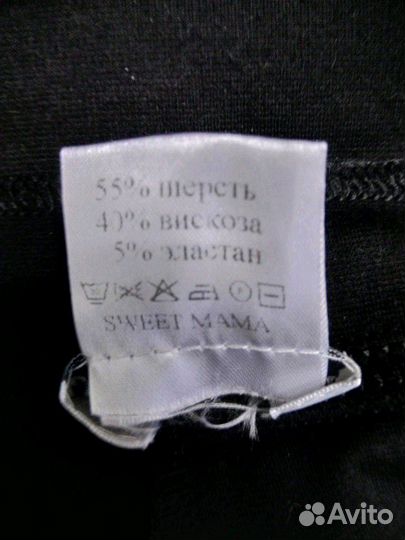 55% шерсть
40% вискоза
5% эластан
SWEET MAMA
Avito